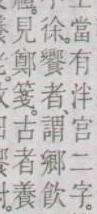 上當有泮宮二字
徐。饗者謂鄉飲
見鄭箋。古者養